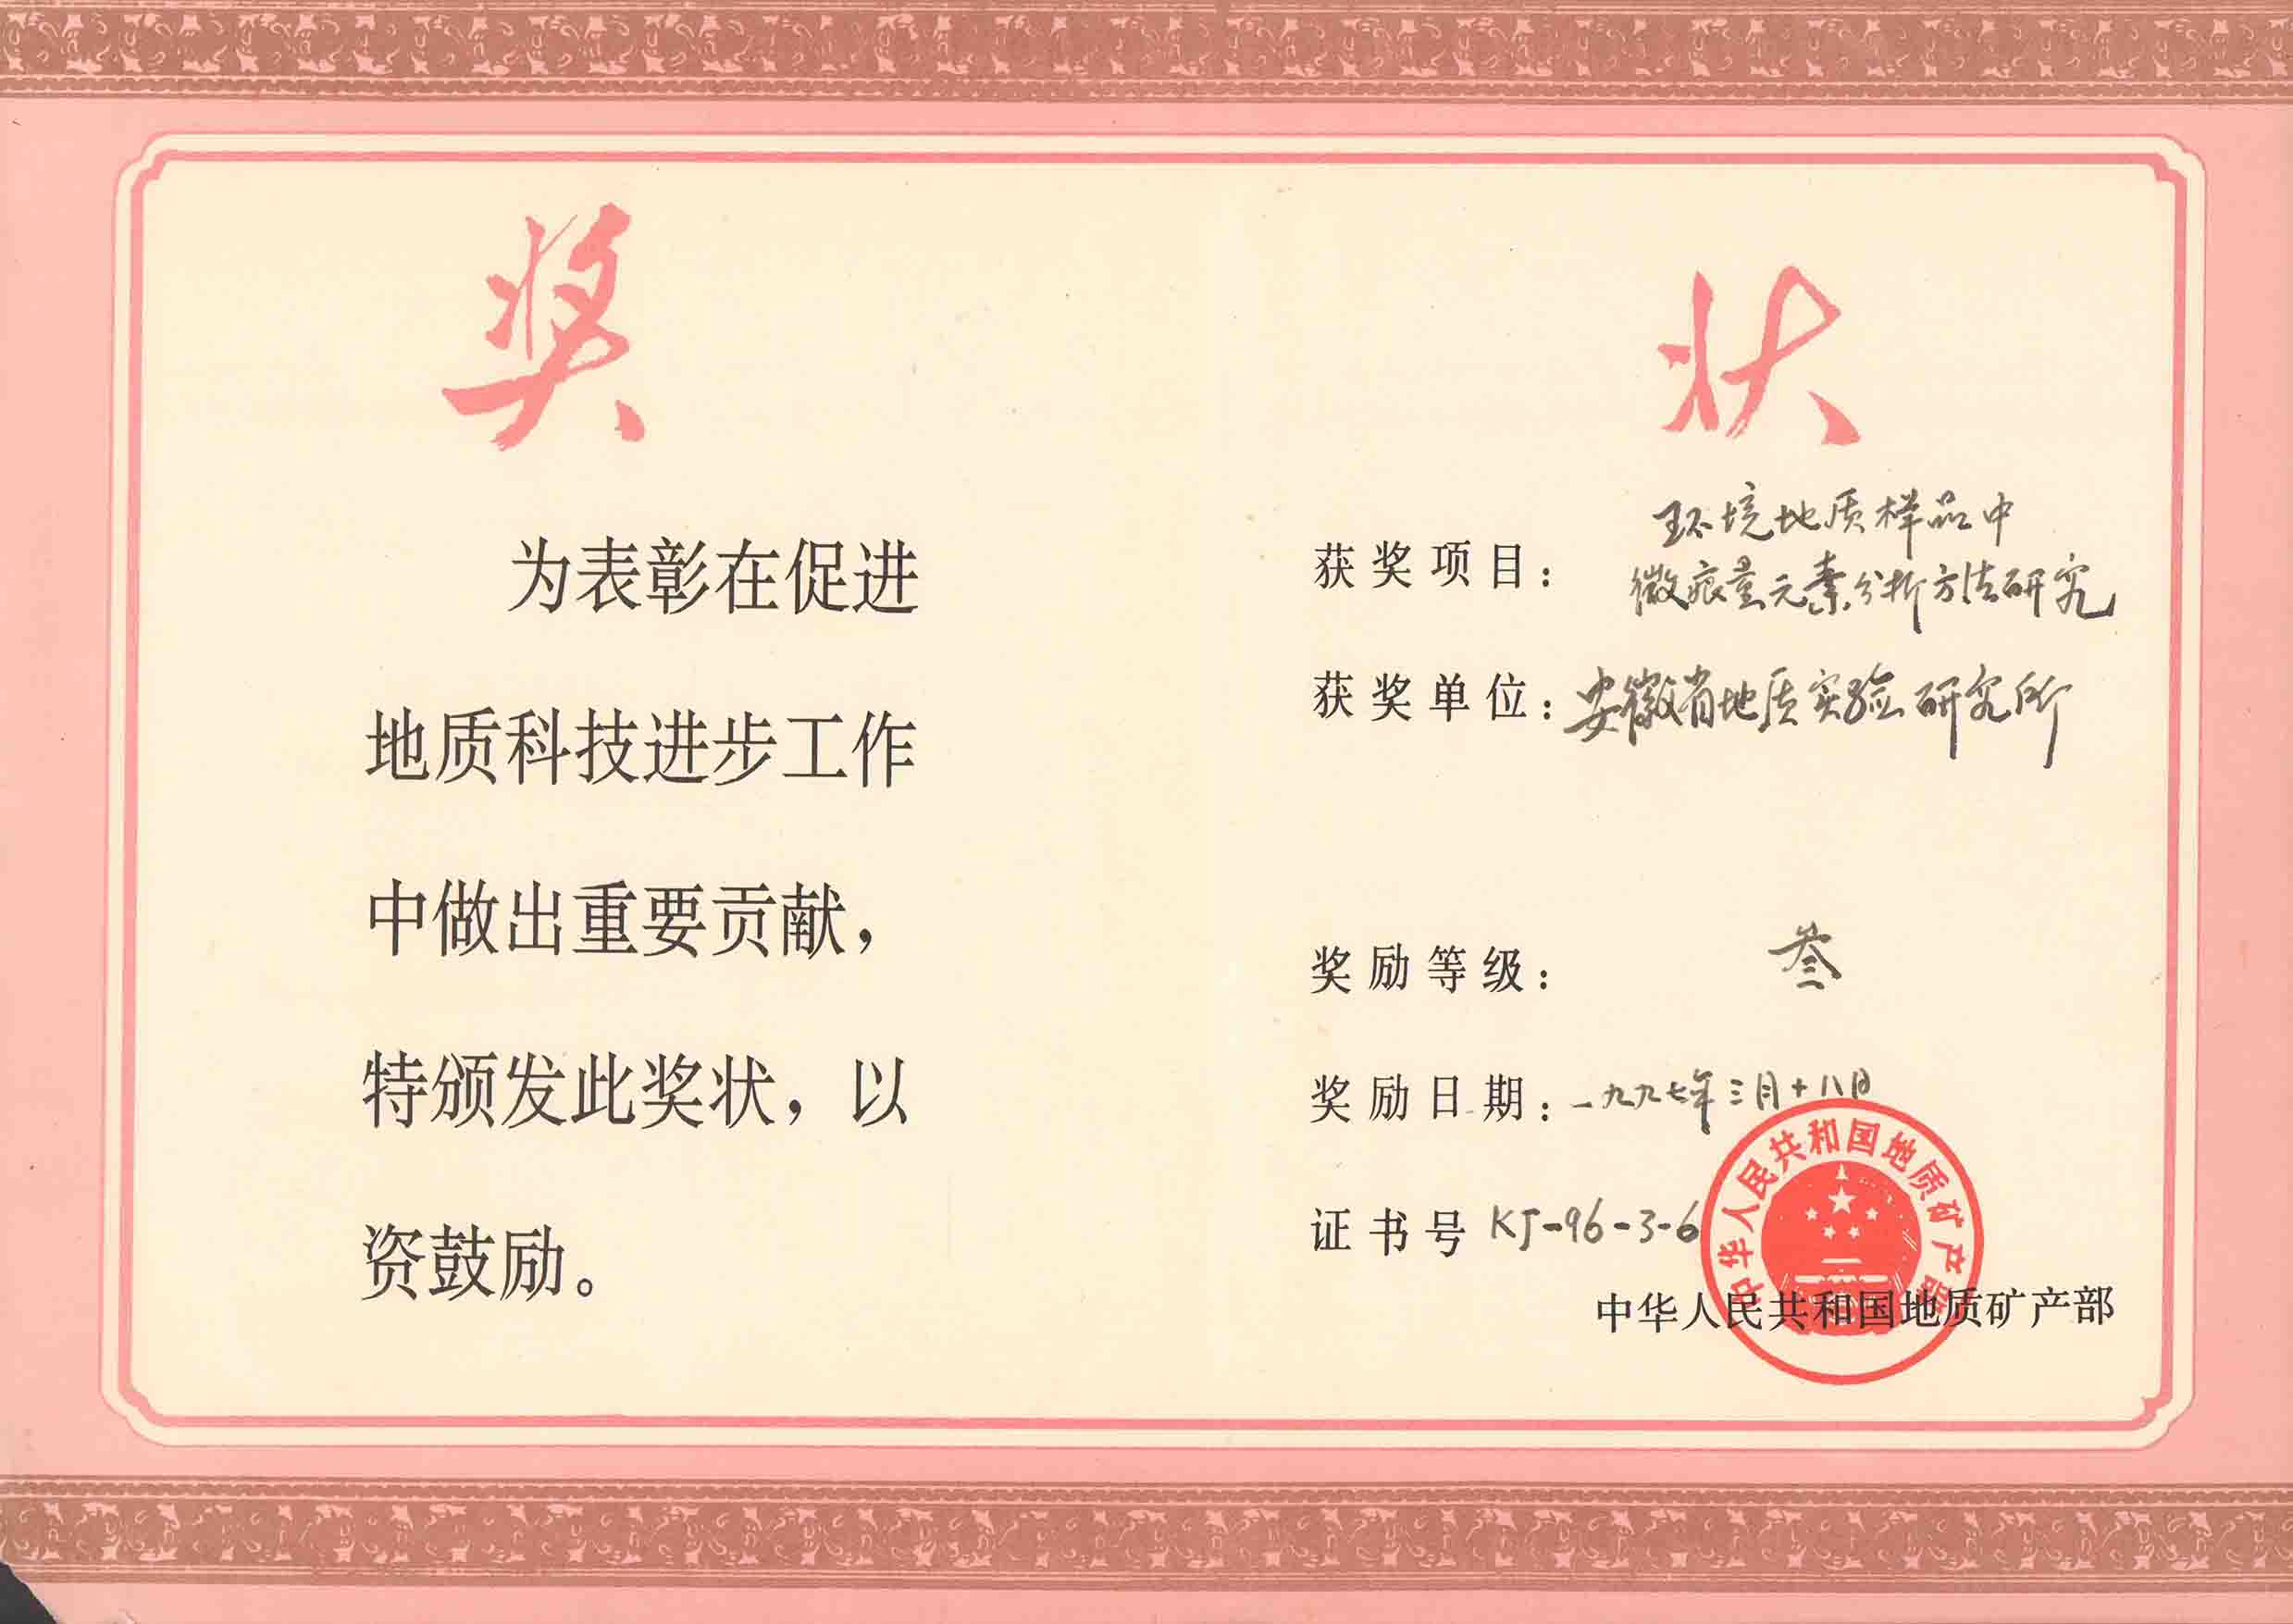 奖状
为表彰在促进
地质科技进步工作
中做出重要贡献，
特颁发此奖状，以
资鼓励。
获奖项目：环境地质样品中
微痕量元素分析方法研究
获奖单位：安徽省地质实验研究所
奖励等级：叁
奖励日期：一九九七年三月十八日
证书号 KJ-96-3-6
中华人民共和国地质矿产部
中华人民共和国地质矿产部